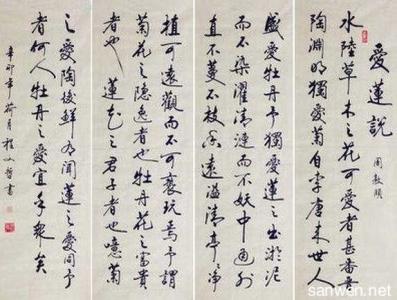 愛蓮說 周敦頤
水陸草木之花可愛者甚蕃晉
陶淵明獨愛菊自李唐來世人
盛愛牡丹予獨愛蓮之出淤泥
而不染濯清漣而不妖中通外
直不蔓不枝香遠溢清亭亭淨
植可遠觀而不可褻玩焉予謂
菊花之隱逸者也牡丹花之富貴
者也蓮花之君子者也噫菊
之愛陶後鮮有聞蓮之愛同予
者何人牡丹之愛宜乎眾矣
辛卯年荷月程文哲書
sanwen.net